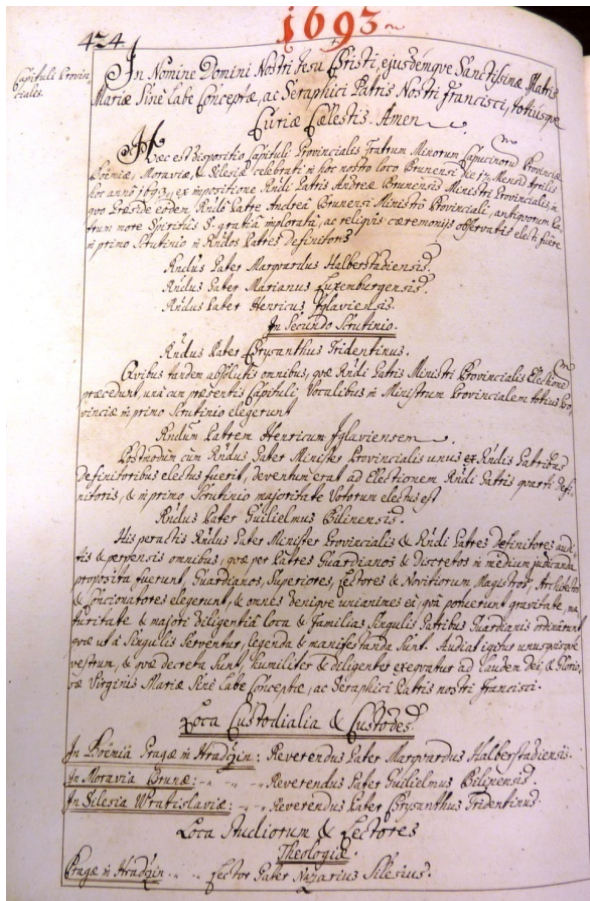 1693
424
Capituli Provin-
ciales.
In Nomine Domini Nostri Jesu Christi, ejusdemque Sanctissimæ Matris
Mariæ Sine labe Conceptæ, ac Seraphici Patris Nostri Francisci, totiusque
Curiæ Cælestis. Amen
Hæc est dispositio Capituli Provincialis Fratrum Minorum Capucinorũ Provinciæ
Boëmiæ, Moraviæ, & Silesiæ celebrati in hoc nostro loco Brunensi die Mensis Aprilis
hoc anno 1693, ex impositione Rńdi Patris Andreæ Brunensis Ministri Provincialis, in
quo Præside eodem Rńdo Patre Andreâ Brunensi Ministro Provinciali, antiquorum Pa-
trum more Spiritûs S. gratiâ imploratâ, ac reliquis cæremonijs observatis electi fuêre
in primo Scrutinio in Rńdos Patres Definitores
Rńdus Pater Marquardus Halberstadiensis.
Rńdus Pater Marianus Luxemburgensis.
Rńdus Pater Henricus Iglaviensis.
In Secundo Scrutinio.
Rńdus Pater Chrysanthus Tridentinus.
Quibus tandem absolutis omnibus, quæ Rńdi Patris Ministri Provincialis Electionẽ
præcedunt, unà cum præsentis Capituli Vocalibus in Ministrum Provincialem totius Pro-
vinciæ in primo Scrutinio elegerunt
Rńdum Patrem Henricum Iglaviensem
Postmodum cùm Rńdus Pater Minister Provincialis unus ex Rńdis Patribus
Definitoribus electus fuerit, deventum erat ad Electionem Rńdi Patris quarti Defi-
nitoris, & in primo Scrutinio majoritate Votorum electus est
Rńdus Pater Guilielmus Bilinensis.
His peractis Rńdus Pater Minister Provincialis & Rńdi Patres Definitores audi-
tis & perpensis omnibus, quæ per Patres Guardianos & Discretos in medium judicanda
proposita fuerunt, Guardianos, Superiores, Lectores & Novitiorum Magistros, Architectos
& Concionatores elegerunt, & omnes denique unianimes eâ, quâ potuerunt gravitate, ma-
turitate & majori diligentiâ loca & familias singulis Patribus Guardianis ordinârunt
quæ ut à singulis serventur, legenda & manifestanda sunt. Audiat igitur unusquisque
vestrum, & quæ decreta sunt humiliter & diligenter exequatur ad laudem Dei, & Glorio-
sæ Virginis Mariæ Sine labe Conceptæ, ac Seraphici Patris nostri Francisci.
Loca Custodialia & Custodes.
In Boëmia Pragæ in Hradčin: Reverendus Pater Marquardus Halberstadiensis.
In Moravia Brunæ: - - - Reverendus Pater Guilielmus Bilinensis.
In Silesia Wratislaviæ: - - Reverendus Pater Chrysanthus Tridentinus.
Loca Studiorum & Lectores
Theologiæ.
Pragæ in Hradčin . . . Lector Pater Nazarius Silesius.